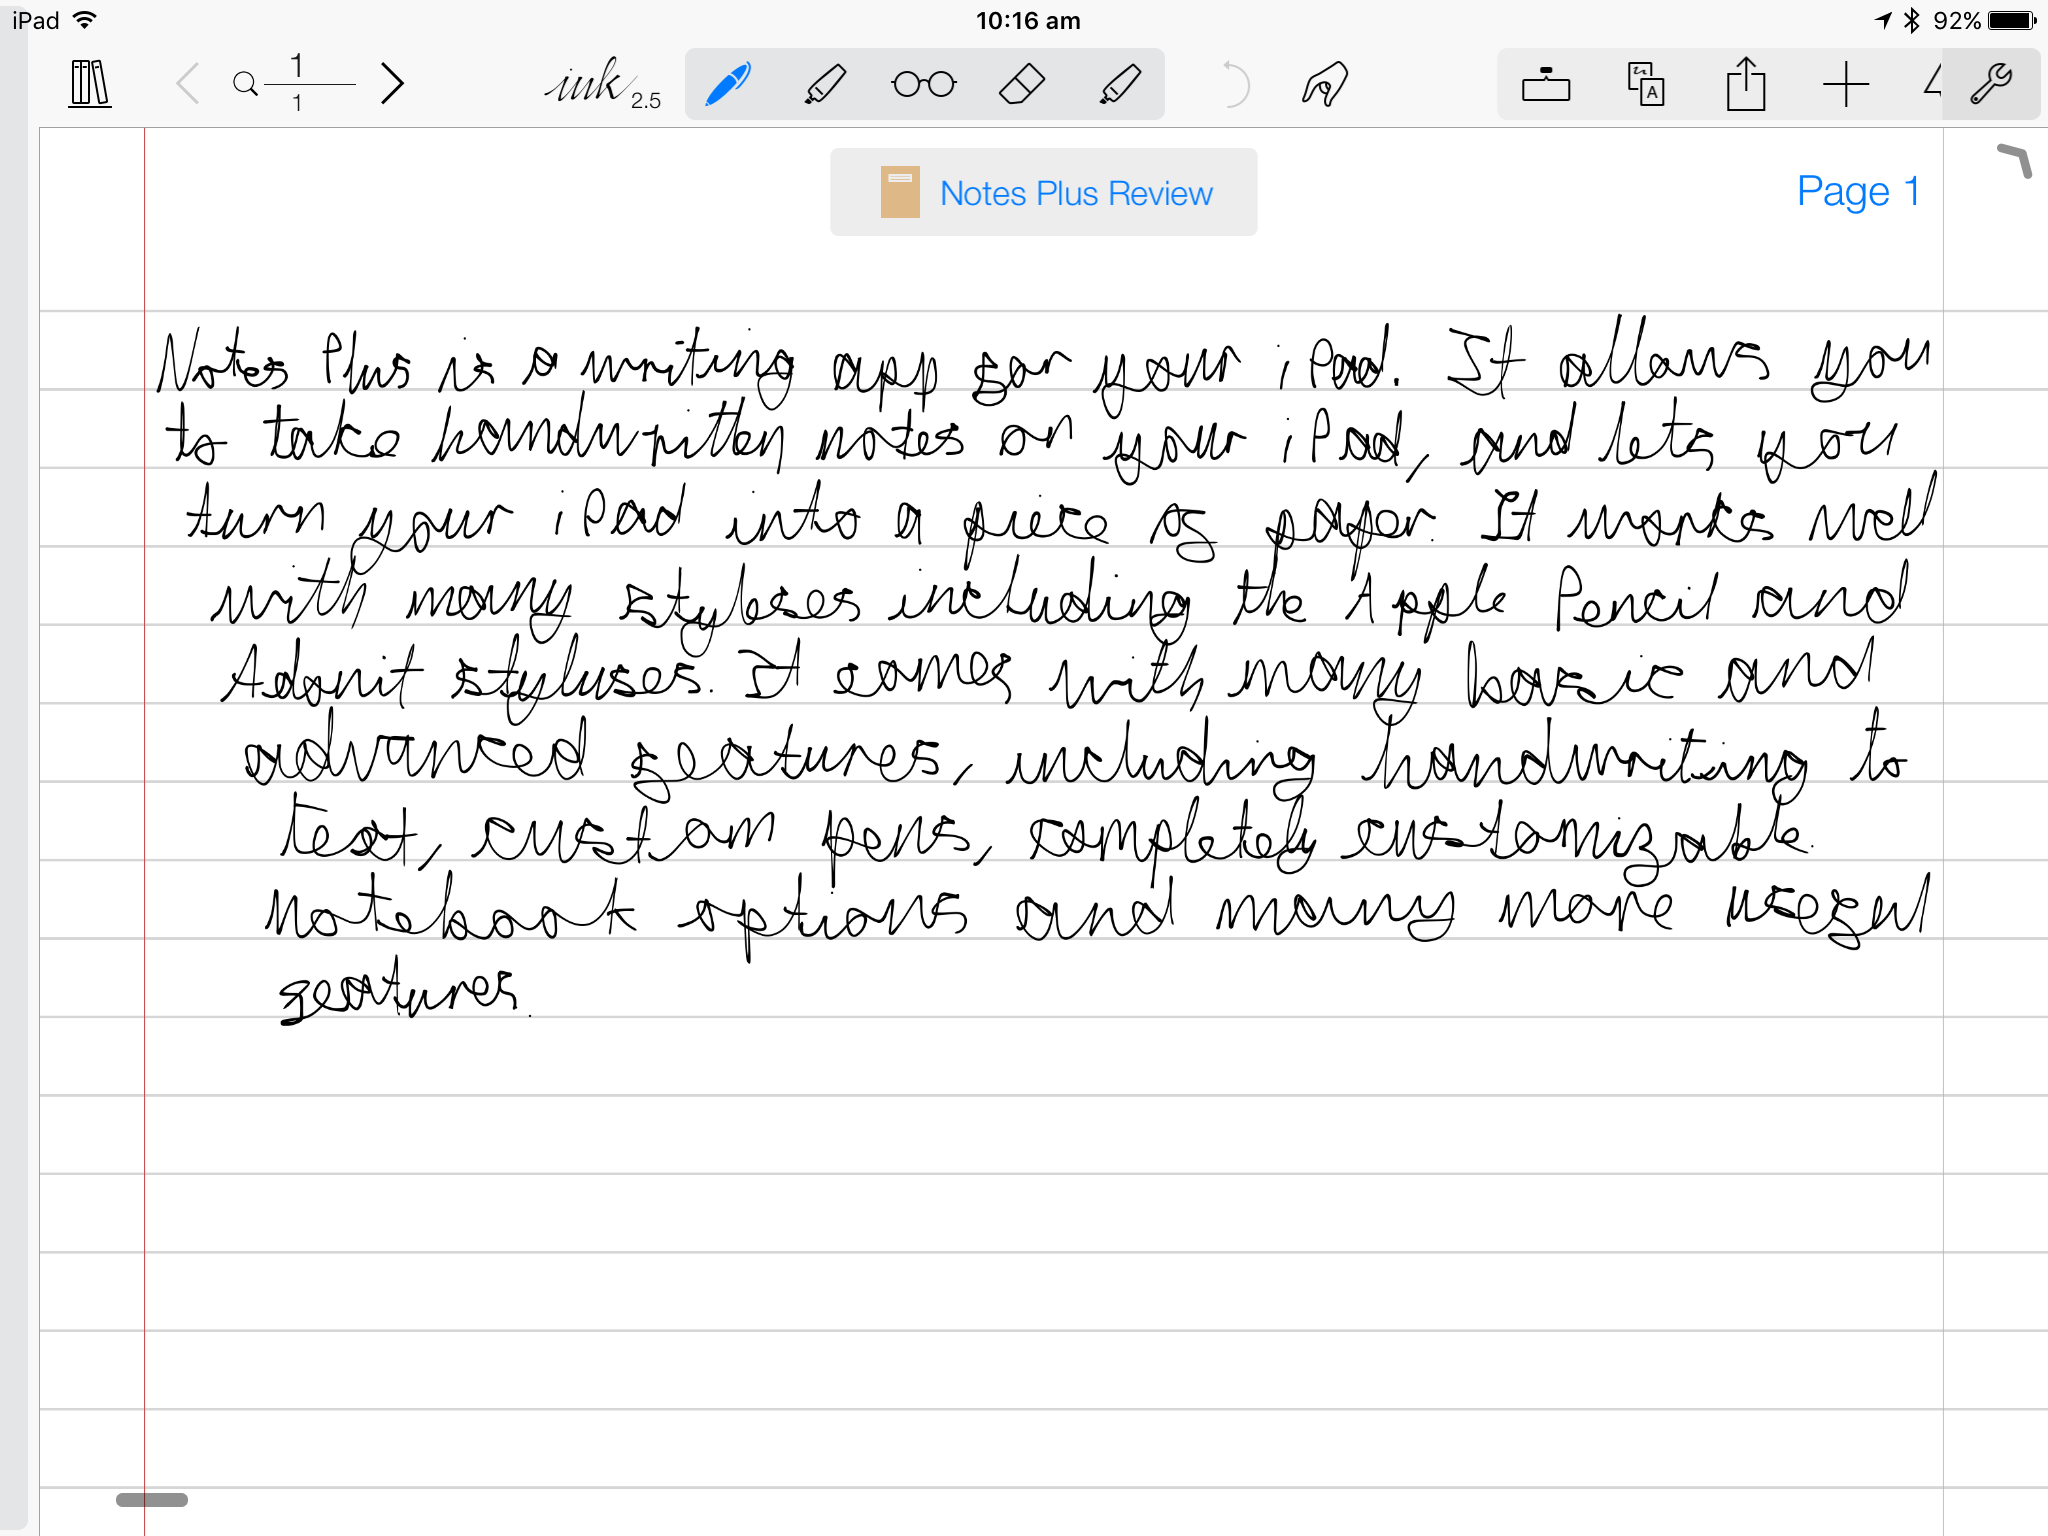 iPad 10:16 am 92%
1
1
ink 2.5
A
Notes Plus Review
Page 1
Notes Plus is a writing app for your iPad. It allows you
to take handwritten notes on your iPad, and lets you
turn your iPad into a piece of paper. It works well
with many styluses including the Apple Pencil and
Adonit styluses. It comes with many basic and
advanced features, including handwriting to
text, custom pens, completely customizable
notebook options and many more useful
features.